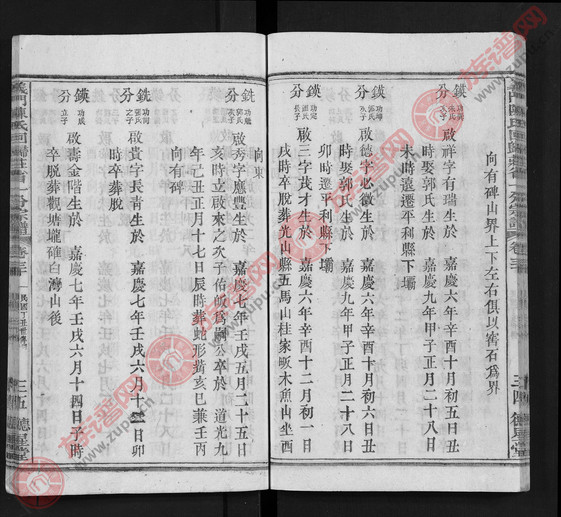 向有碑山界上下左右俱以窖石爲界
啟祥字有瑞生於 嘉慶六年辛酉十月初五日丑
時娶郭氏生於 嘉慶九年甲子正月二十八日
未時遠遷平利縣下壩
鍈分
啟德字必微生於 嘉慶六年辛酉十月初六日丑
時娶郭氏生於 嘉慶九年甲子正月二十八日
卯時遷平利縣下壩
鍈分
啟三字茂才生於 嘉慶六年辛酉十二月初一日
戌時卒脫葬光山縣五馬山桂家畈木魚山坐酉
向東
銑分
啟秀字應豐生於 嘉慶七年壬戌五月二十五日
亥時立啟來之次子佑皈爲嗣公卒於 道光九
年己丑正月十七日辰時葬蛇形山巳亥兼壬丙
向有碑
銑分
啟貴字長青生於 嘉慶七年壬戌六月十二日卯
時卒葬脫
鍈分
啟壽字金階生於 嘉慶七年壬戌六月十四日子時
卒脫葬觀塘壠碓臼灣山後
義門陳氏
宗譜
三四 德星堂
三五 德星堂
族谱网
www.zupu.cn